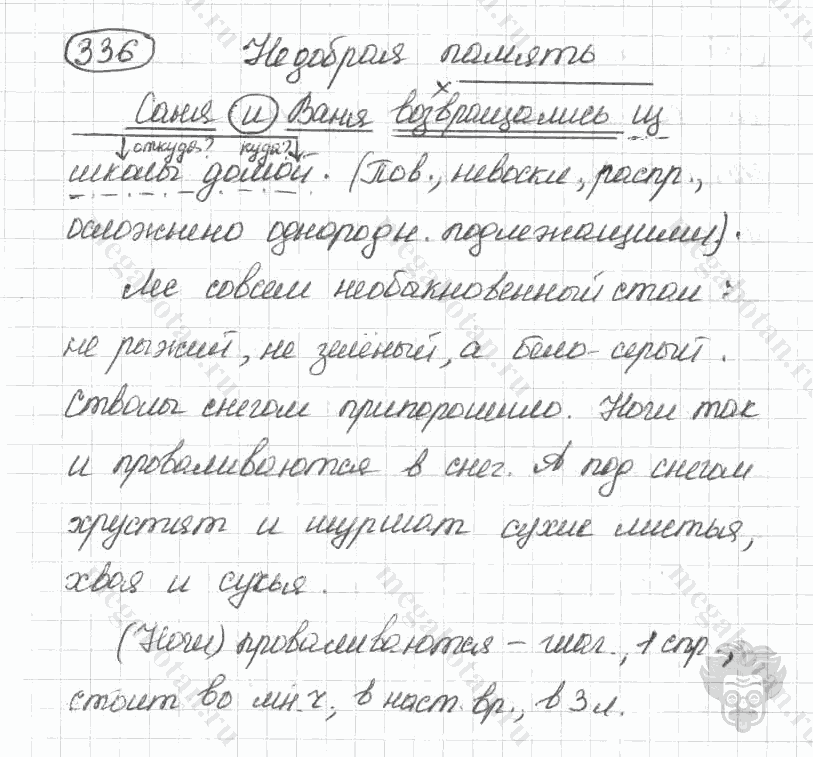 336 Недобрая память
Саня и Ваня возвращались из
откуда? куда?
школы домой. (Пов., невоскл., распр.,
осложнено однородн. подлежащими).
Лес совсем необыкновенный стал:
не рыжий, не зелёный, а бело-серый.
Стволы снегом припорошило. Ноги так
и проваливаются в снег. А под снегом
хрустят и шуршат сухие листья,
хвоя и сучья.
(Ноги) проваливаются – глаг., 1 спр.,
стоит во мн.ч., в наст. вр., в 3 л.
megabotan.ru